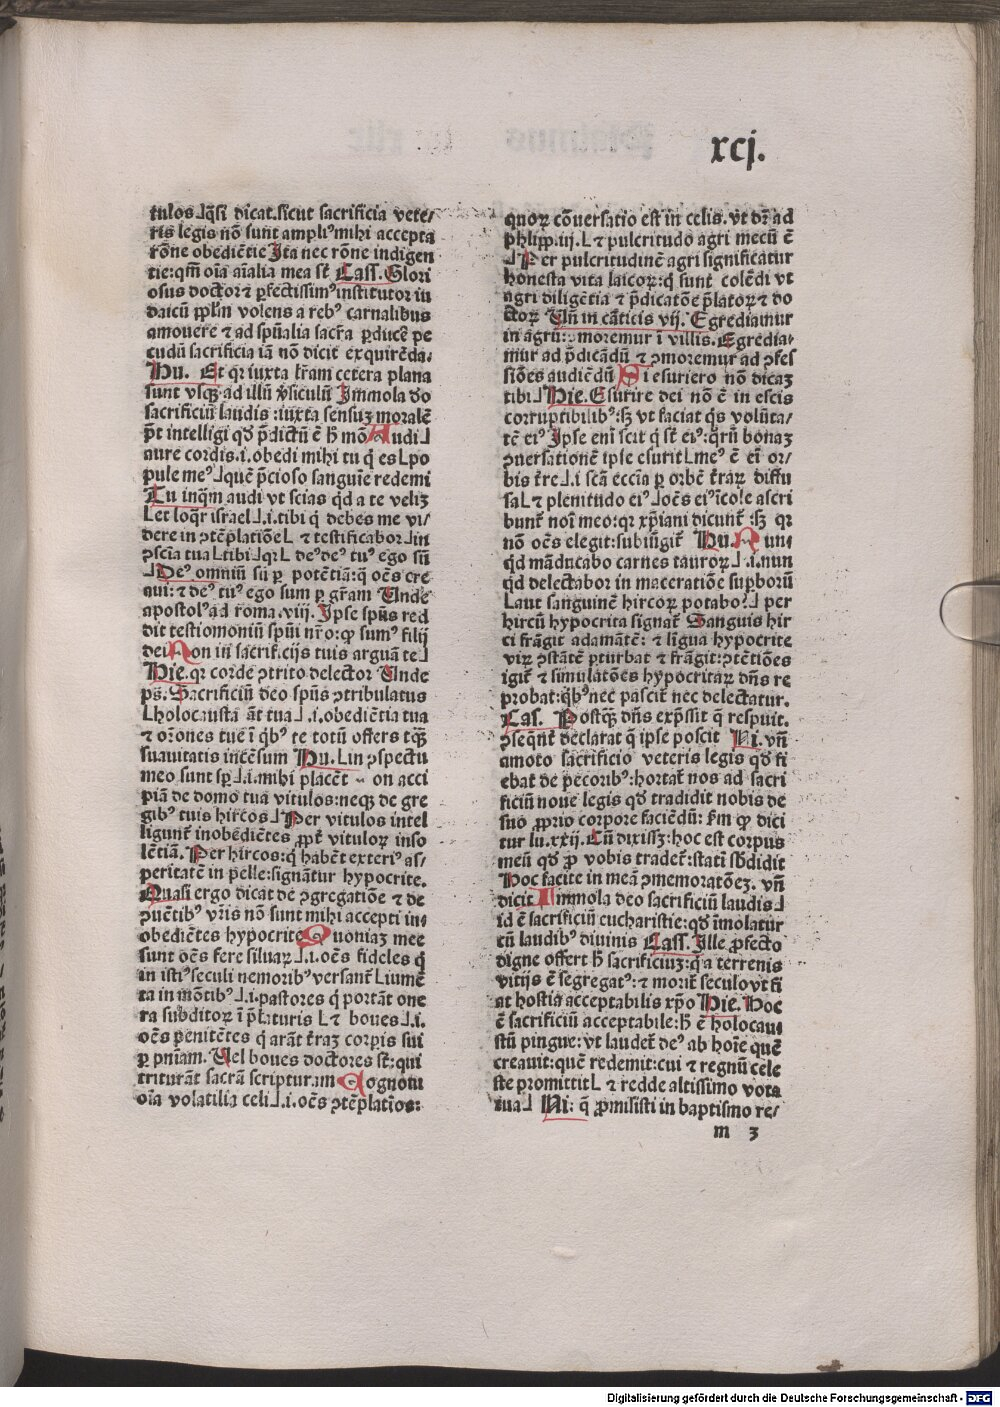 xcj.
tulos⅃q̄si dicat.sicut sacrificia vete/
ris legis nō sunt ampliꝰ mihi accepta
rōne obediētie Ita nec rōne indigen
tie:qm̄ oīa aīalia mea st̄ Cass. Glori
osus doctor ⁊ ꝑfectissimꝰ institutor iu
daicū ppl̄m volens a rebꝰ carnalibus
amouere ⁊ ad spūalia sacr̄a ꝑducē pe
cudū sacrificia iā nō dicit exquirēda.
Hu. Et qꝛ iuxta lr̄am cetera plana
sunt vsqꝫ ad illū v̄siculū Immola do
sacrificiū laudis :iuxta sensuꝫ moralē
pōt intelligi qd̄ p̄dictū ē h̄ mō Audi⅃
aure cordis.i.obedi mihi tu q̄ es Lpo
pule meꝰ⅃quē p̄cioso sanguīe redemi
Tu inq̄m audi vt scias qd̄ a te veliꝫ
Let loqr̄ israel⅃.i.tibi q̄ debes me vi/
dere in ɔtēplatiōe L ⁊ testificabor⅃in
ɔsciā tua Ltibi⅃qꝛ L deꝰ deꝰ tuꝰ ego sū
⅃Deꝰ omniū sū ꝑ potētiā:q̄ oēs cre
aui: ⁊ deꝰ tuꝰ ego sum ꝑ gr̄am Unde
apostolꝰ ad roma.viij. Ipse sp̄us red
dit testiomoniū sp̄ui nr̄o:ꝙ sumꝰ filij
dei Non in sacrif.cijs tuis arguā te⅃
Pie.qꝛ corde ɔtrito delector Unde
ps̄. Sacrificiū deo sp̄us ɔtribulatus
Lholocausta āt tua⅃.i.obediētia tua
⁊ oꝛōnes tue ī qͥbꝰ te totū offers tqꝫ
suauitatis incēsum Hu. Lin ɔspectu
meo sunt sp̄⅃.i.mihi placēt on acci
piā de domo tua vitulos:neqꝫ de gre
gibꝰ tuis hircos⅃Per vitulos intel
ligunt̄ inobēdiētes ꝓpt̄ vituloꝝ inso
lētiā. Per hircos:q̄ habēt exteriꝰ as/
peritatē in pelle:signātur hypocrite.
Quasi ergo dicat de ɔgregatiōe ⁊ de
ɔuētibꝰ vr̄is nō sunt mihi accepti in/
obediētes hypocrite Quoniaꝫ mee
sunt oēs fere siluaꝝ⅃.i.oēs fideles q̄
in istiꝰ seculi nemoribꝰ versant̄ Liumē
ta in mōtibꝰ⅃.i.pastores q̄ portāt one
ra subditoꝝ ī p̄laturis L⁊ boues⅃.i.
oēs penitētes q̄ arāt t̄raꝫ corꝑis sui
ꝑ pn̄iam. Uel boues doctores st̄:qui
triturāt sacrā scripturam Cognoui
oīa volatilia celi⅃.i.oēs ɔtēplatiōs:
quoꝝ cōuersatio est in celis. vt dꝛ ad
philipp.iij. L⁊ pulcritudo agri mecū ē
⅃Per pulcritudinē agri significatur
honesta vita laicoꝝ:q̄ sunt colēdi vt
agri diligētia ⁊ p̄dicatōe p̄latoꝝ ⁊ do
ctoꝝ Un̄ in cāticis vij. Egrediamur
in agrū: ɔmoremur ī villis. Egredia/
mur ad p̄dicādū ⁊ ɔmoremur ad ɔfes
siōes audiēdū Si esuriero nō dicaꝫ
tibi⅃Pie. Esurire dei nō ē in escis
corruptibilibꝰ:sꝫ vt faciat q̄s volūta/
tē eiꝰ Ipse eni scit q̄ st̄ eiꝰ:qrū bonaꝫ
ɔuersationē ipse esurit Lmeꝰ ē ei or/
bis t̄re⅃.i scā ecc̄ia ꝑ orbē t̄raꝝ diffu
sa L⁊ plenitudo eiꝰ⅃oēs eiꝰ īcole ascri
bunt̄ noī meo:qꝛ xp̄iani dicunt̄ :sꝫ qꝛ
nō oēs elegit:subiūgit̄ Hu. Nun/
qd̄ māducabo carnes tauroꝝ⅃.i.nun
qd̄ delectabor in maceratiōe supboꝝ
Laut sanguinē hircoꝝ potabo?⅃per
hircū hypocrita signat̄ Sanguis hir
ci frāgit adamātē: ⁊ līgua hypocrite
viꝝ ɔstātē ꝑturbat ⁊ frāgit:ɔtētiōes
igit̄ ⁊ simulatōes hypocritaꝝ dn̄s re
probat:qͥbꝰ nec pascit̄ nec delectatur.
Cas. Postqꝫ dn̄s exp̄ssit q̄ respuit.
ɔseqn̄t̄ declarat q̄ ipse poscit Ni.vn̄
amoto sacrificio veteris legis qd̄ fi
ebat de pecoribꝰ:hortat̄ nos ad sacri
ficiū noue legis qd̄ tradidit nobis de
suo ꝓprio corpore faciēdū: fm̄ ꝙ dici
tur lu.xxij. Cū dixissꝫ:hoc est corpus
meū qd̄ ꝓ vobis tradet̄:statī sb̄didit
Hoc facite in meā ɔmemoratōeꝫ. vn̄
dicit Immola deo sacrificiū laudis⅃
id ē sacrificiū eucharistie:qd̄ īmolatur
cū laudibꝰ diuinis Cass. Ille ꝓfecto
digne offert h̄ sacrificiuꝫ:q̄ a terrenis
vitijs ē segregatꝰ: ⁊ morit̄ seculo vt fi
at hostia acceptabilis xp̄o Pie. Hoc
ē sacrificiū acceptabile:h̄ ē holocau
stū pingue:vt laudet̄ deꝰ ab hoīe quē
creauit:quē redemit:cui ⁊ regnū cele
ste promittit L ⁊ redde altissimo vota
tua⅃ Ni: q̄ ꝓmisisti in baptismo re/
m 3
Digitalisierung gefördert durch die Deutsche Forschungsgemeinschaft - DFG